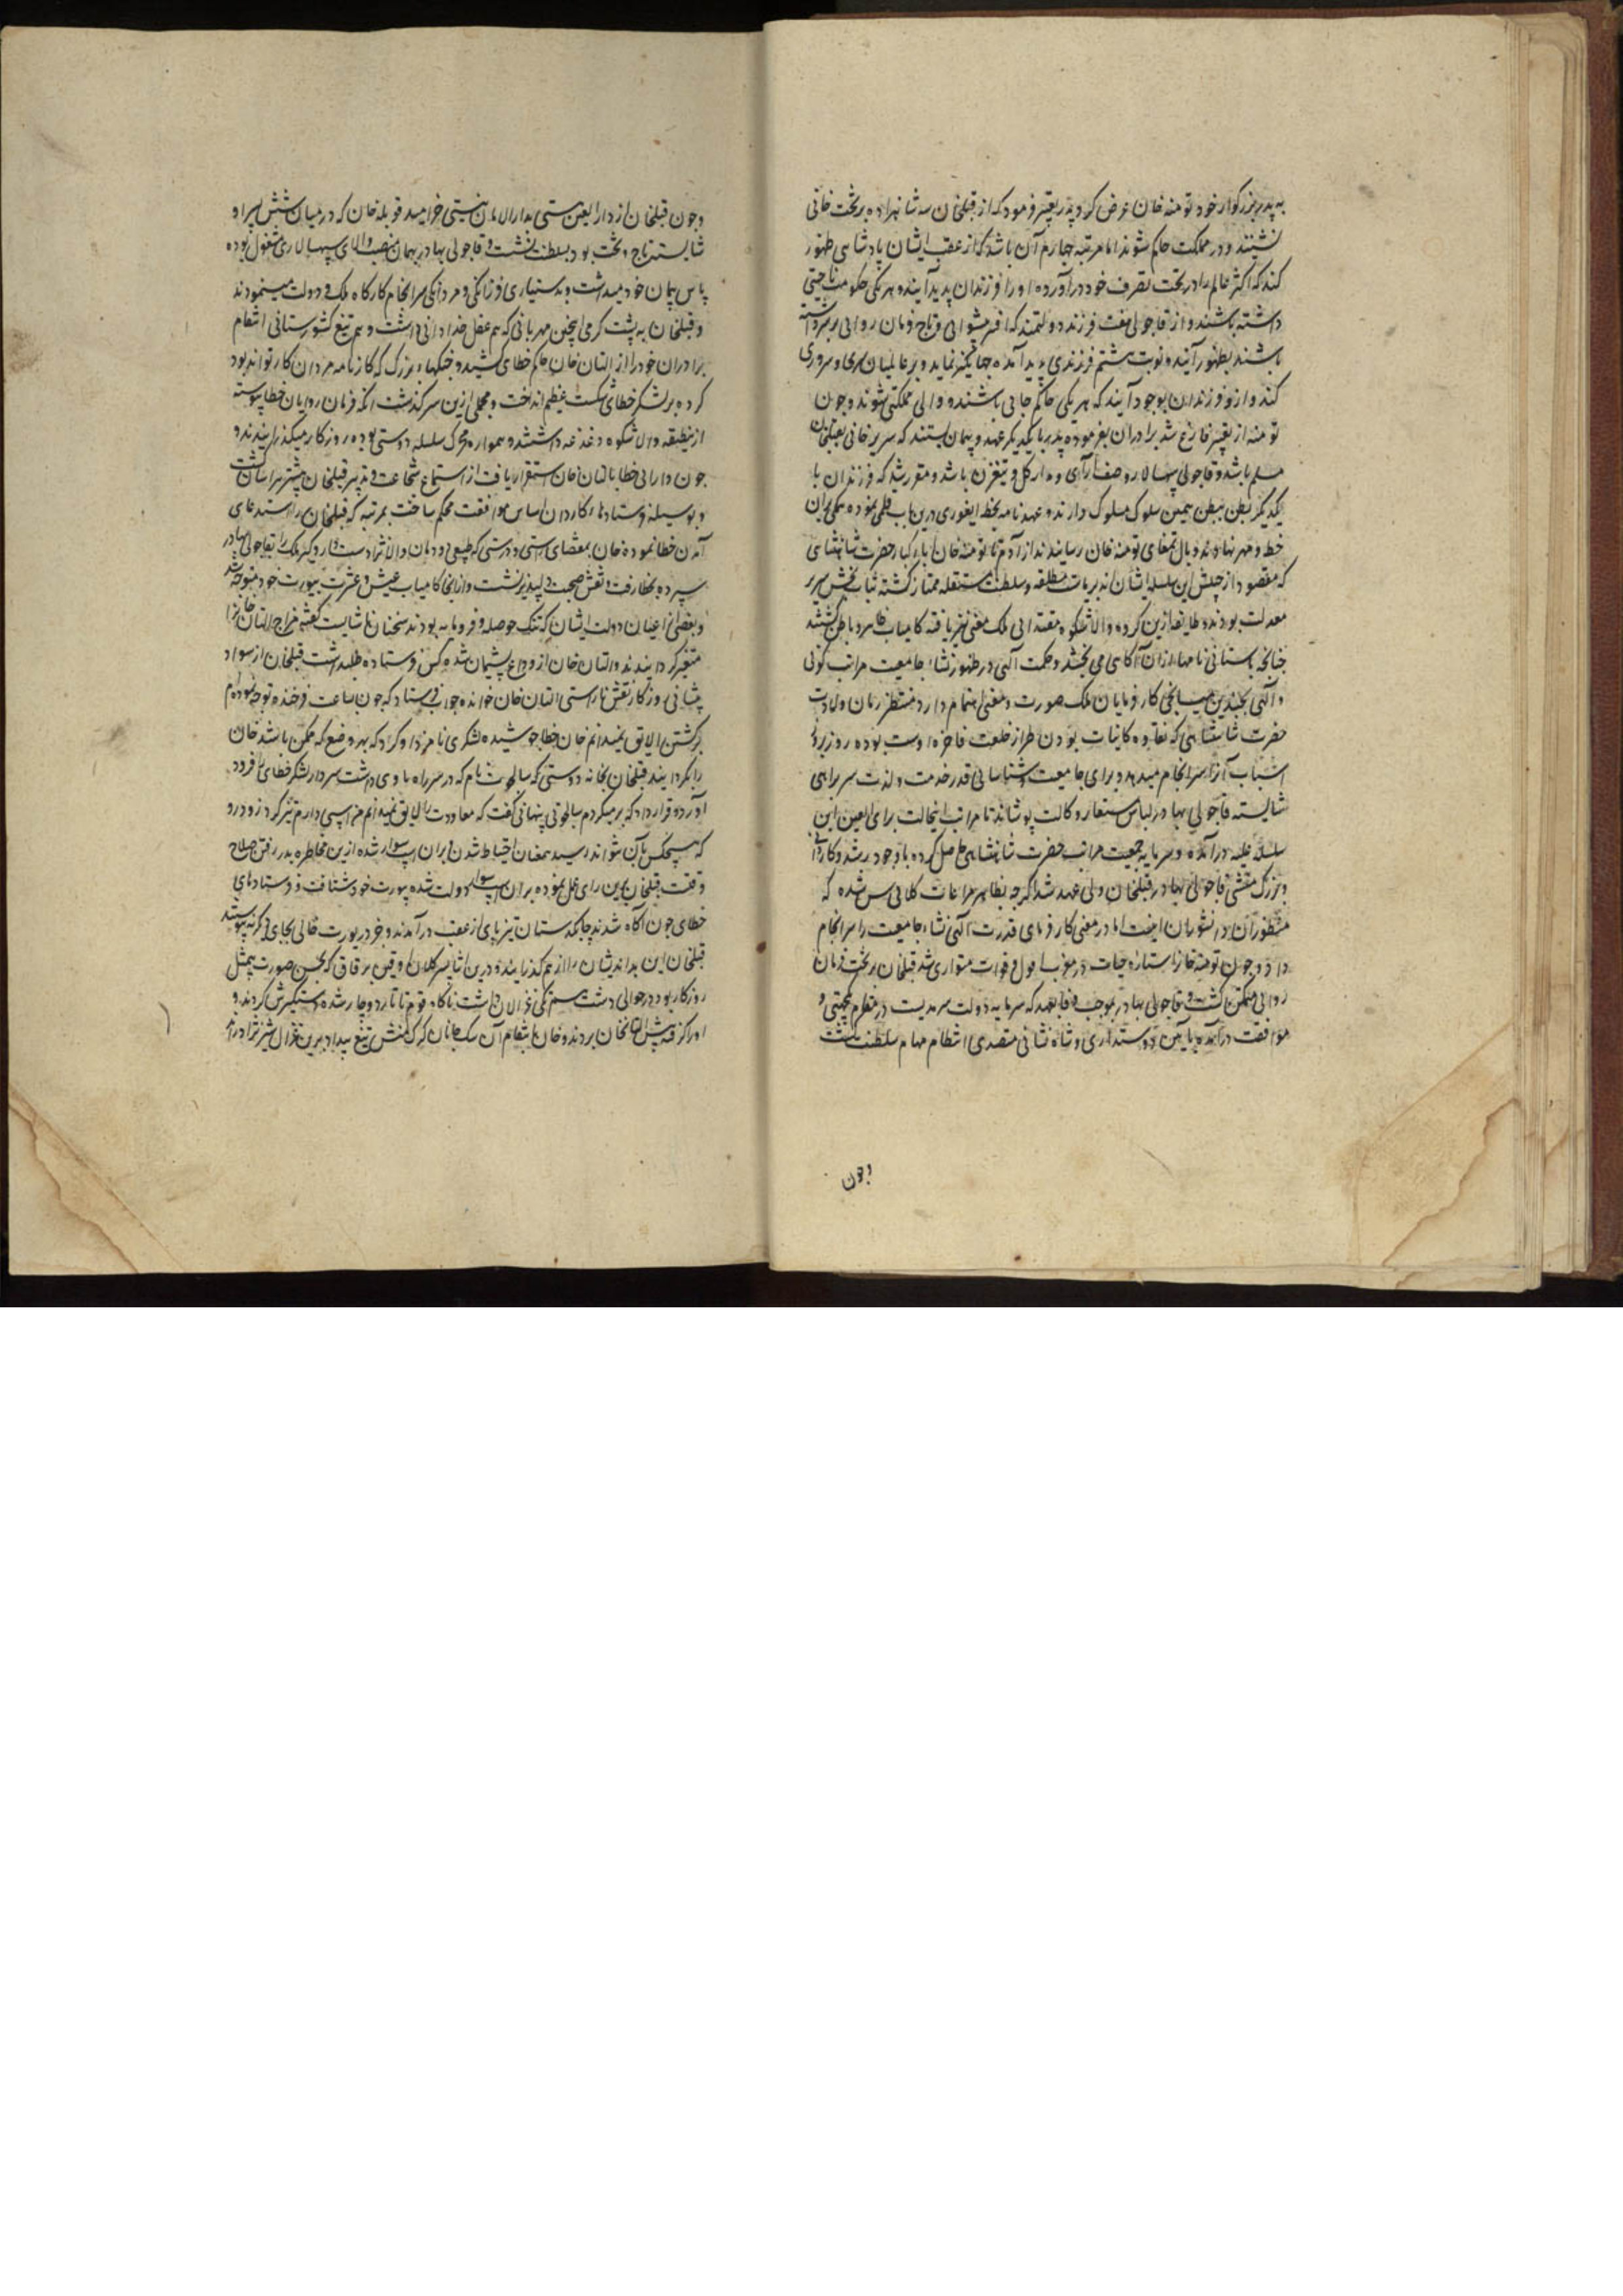 به پدر بزرکوار خود تومنه خان عرض کرد و پدر تعبیر فرمود که از قبلخان سه شاهزاده بر تخت خانی
نشینند و در مملکت حاکم شوند اما مرتبه چهارم آن باشد که از عقب ایشان پادشاهی ظهور
کند که اکثر عالم را در تحت تصرف خود درآورد و او را فرزندان پدید آیند و هر یکی حکومت ناحیتی
داشته باشند و از قاجولی هفت فرزند دولتمند که افسر پیشوایی و تاج فرمان روایی بر سر داشته
باشند بظهور آیند و نوبت هشتم فرزندی پدید آمده جهانگیری نماید و بر عالمیان سری و سروری
کند و ازو فرزندان بوجود آیند که هر یکی حاکم جایی باشند و والی مملکتی شوند و چون
تومنه از تعبیر فارغ شد برادران بفرموده پدر با یکدیکر عهد و پیمان بستند که سریر خانی بقبلخان
مسلم باشد و قاجولی سپهسالار و صف آرای و مدار کل و تیغزن باشد و مقرر شد که فرزندان با
یکدیگر بطن ببطن همین سلوک مسلوک دارند و عهدنامه بخط ایغوری درین باب قلمی نموده همگی بران
خط و مهر نهادند و بآل تمغای تومنه خان رسانیدند از آدم تا تومنه خان آباء کبار حضرت شاهنشاهی
که مقصود از جنبش این سلسله ایشان اند بریاست مطلقه و سلطنت مستقله ممتاز کشته ثبات بخش سریر
معدلت بودند و طایفه ازین کروه والاشکوه مقتدایی ملک معنی نیز یافته کامیاب ظاهر و باطن کشتند
چنانچه باستانی نامها ازان آکاهی می بخشد و حکمت آلهی در ظهور نشاء جامعیت مراتب کونی
و آلهی بچندین میانجی کار فرمایان ملک صورت و معنی اهتمام دارد منتظر زمان ولادت
حضرت شاهنشاهی که نقاوه کاینات بودن طراز خلعت فاخره اوست بوده روز بروز
اسباب آنرا سرانجام میدهد و برای جامعیت و شناسایی قدر خدمت و لذت سربراهی
شایسته قاجولی بهادر لباس مستعار وکالت پوشاند تا مراتب این حالت برای العین این
سلسله علیه درآمده و سرمایه جمعیت مراتب حضرت شاهنشاهی حاصل کرده با وجود رشد و کاردانی
و بزرگ منشی قاجولی بهادر قبلخان ولی عهد شد اکرچه بظاهر مراعات کلانی سن شده که
منظور آن دانشوران نیفتاده اما در معنی کار فرمای قدرت آلهی نشاء جامعیت را سرانجام
داد و چون تومنه خان را ستاره حیات در مغرب افول و فوات متواری شد قبلخان بر تخت فرمان
روایی متمکن کشت و قاجولی بهادر بموجب وفا بعهد که سرمایه دولت سرمدیست در مقام یکجهتی و
موافقت درآمده بآیین دوستداری و شاه نشانی متصدی انتظام مهام سلطنت کشت
وچون
وچون قبلخان از دارالعین هستی بدارالامان نیستی خرامید قوبله خان که در میان شش پسر او
شایسته تاج و تخت بود بسلطنت نشست و قاجولی بهادر بهمان منصب والای سپهسالاری مشغول بوده
پاس پیمان خود میداشت و بدستیاری فرزانکی و مردانکی سرانجام کارکاه ملک و دولت مینمودند
و قبلخان به پشت کرمی اینچنین مهربانی که هم عقل خدادانی داشت و هم تیغ کشورستانی انتقام
برادران خود را از التان خان حاکم خطای کشید و جنکهای بزرک که کارنامه مردان کار تواند بود
کرده بر لشکر خطای شکست عظیم انداخت و مجملی ازین سرکذشت آنکه فرمان روایان خطا پیوسته
ازین طبقه والا شکوه دغدغه داشتند و همواره محرک سلسله دوستی بوده روزکار میگذرانیدند و
چون دارائی خطا بالتان خان استقرار یافت از استماع شجاعت و تدبیر قبلخان بیشتر هراسان کشت
و بوسیله فرستادهای کاردان اساس موافقت محکم ساخت بمرتبه که قبلخان را استدعای
آمدن خطا نموده خان بمقتضای راستی و درستی که طبیعی دودمان والانژاد است دار و کیر ملک را بقاجولی بهادر
سپرده بخطا رفت و نقش صحبت دلپذیر نشست و از آنجا کامیاب عیش و عشرت بیورت خود متوجه شد
و بعضی از اعیان دولت ایشان که تنک حوصله و فرومایه بودند سخنان ناشایست کفته مزاج التان خان را
متغیر کردانیدند و التان خان از وداع پشیمان شده کس فرستاده طلبداشت قبلخان از سواد
پیشانی روزکار نقش ناراستی التان خان خوانده جواب فرستاد که چون بساعت فرخنده توجه نموده ام
برکشتن لایق نمیدانم خان خطا جوشیده لشکری نامزد او کرد که بهر وضع که ممکن باشد خان
را بکردانند قبلخان بخانه دوستی که سالجوت نام که در سر راه ماوی داشت سردار لشکر خطای را فرود
آورده قرار داد که بر میکردم سالجوتی پنهانی کفت که معاودت را لایق نمیدانم من اسپی دارم تیزکرد زود رو
که هیچکس بآن نتواند رسید همعنان احتیاط شدن و بران اسپ سوار شده ازین مخاطره بدر رفتن صلاح
وقتست قبلخان برین رای عمل نموده بران اسپ سوار دولت شده بیورت خود شتافت و فرستادهای
خطای چون آکاه شدند چابکدستان تیز پای از عقب درآمدند و خبر در یورت خالی بجای دیکر نپیوستند
قبلخان این بداندیشان را از هم کذرانید و درین اثنا پسر کلان او قین برقاق که بحسن صورت بیمثل
روزکار بود در حوالی دشت سیر میکرد غزالان داشت ناکاه قوم تاتار دوچار شده دستکیرش کردند و
او را کرفته پیش التان خان بردند و خان بانتقام آن سک جانان کرک منش تیغ بیداد برین غزال شیرنژاد راند